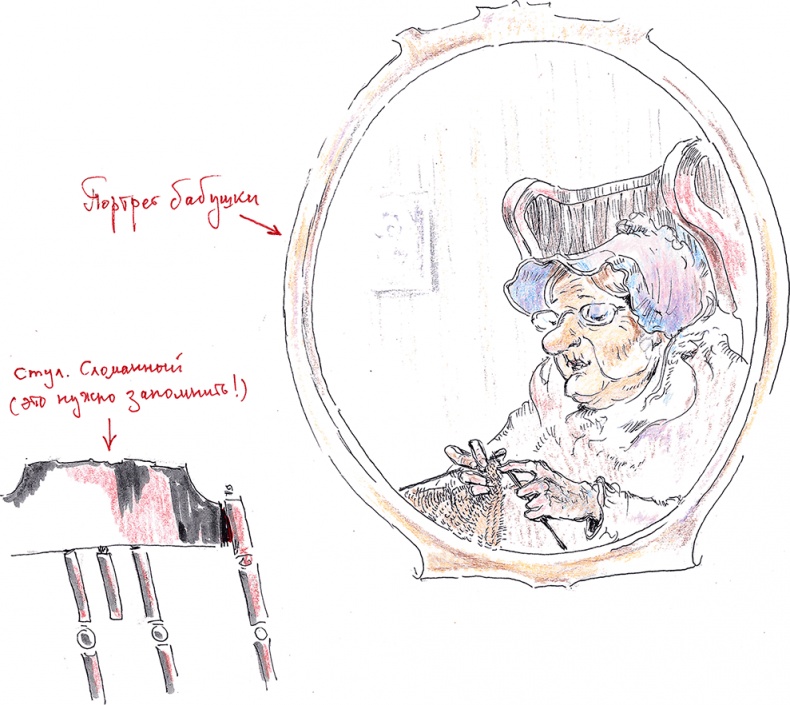 Портрет бабушки
стул. Сломанный
(это нужно запомнить!)